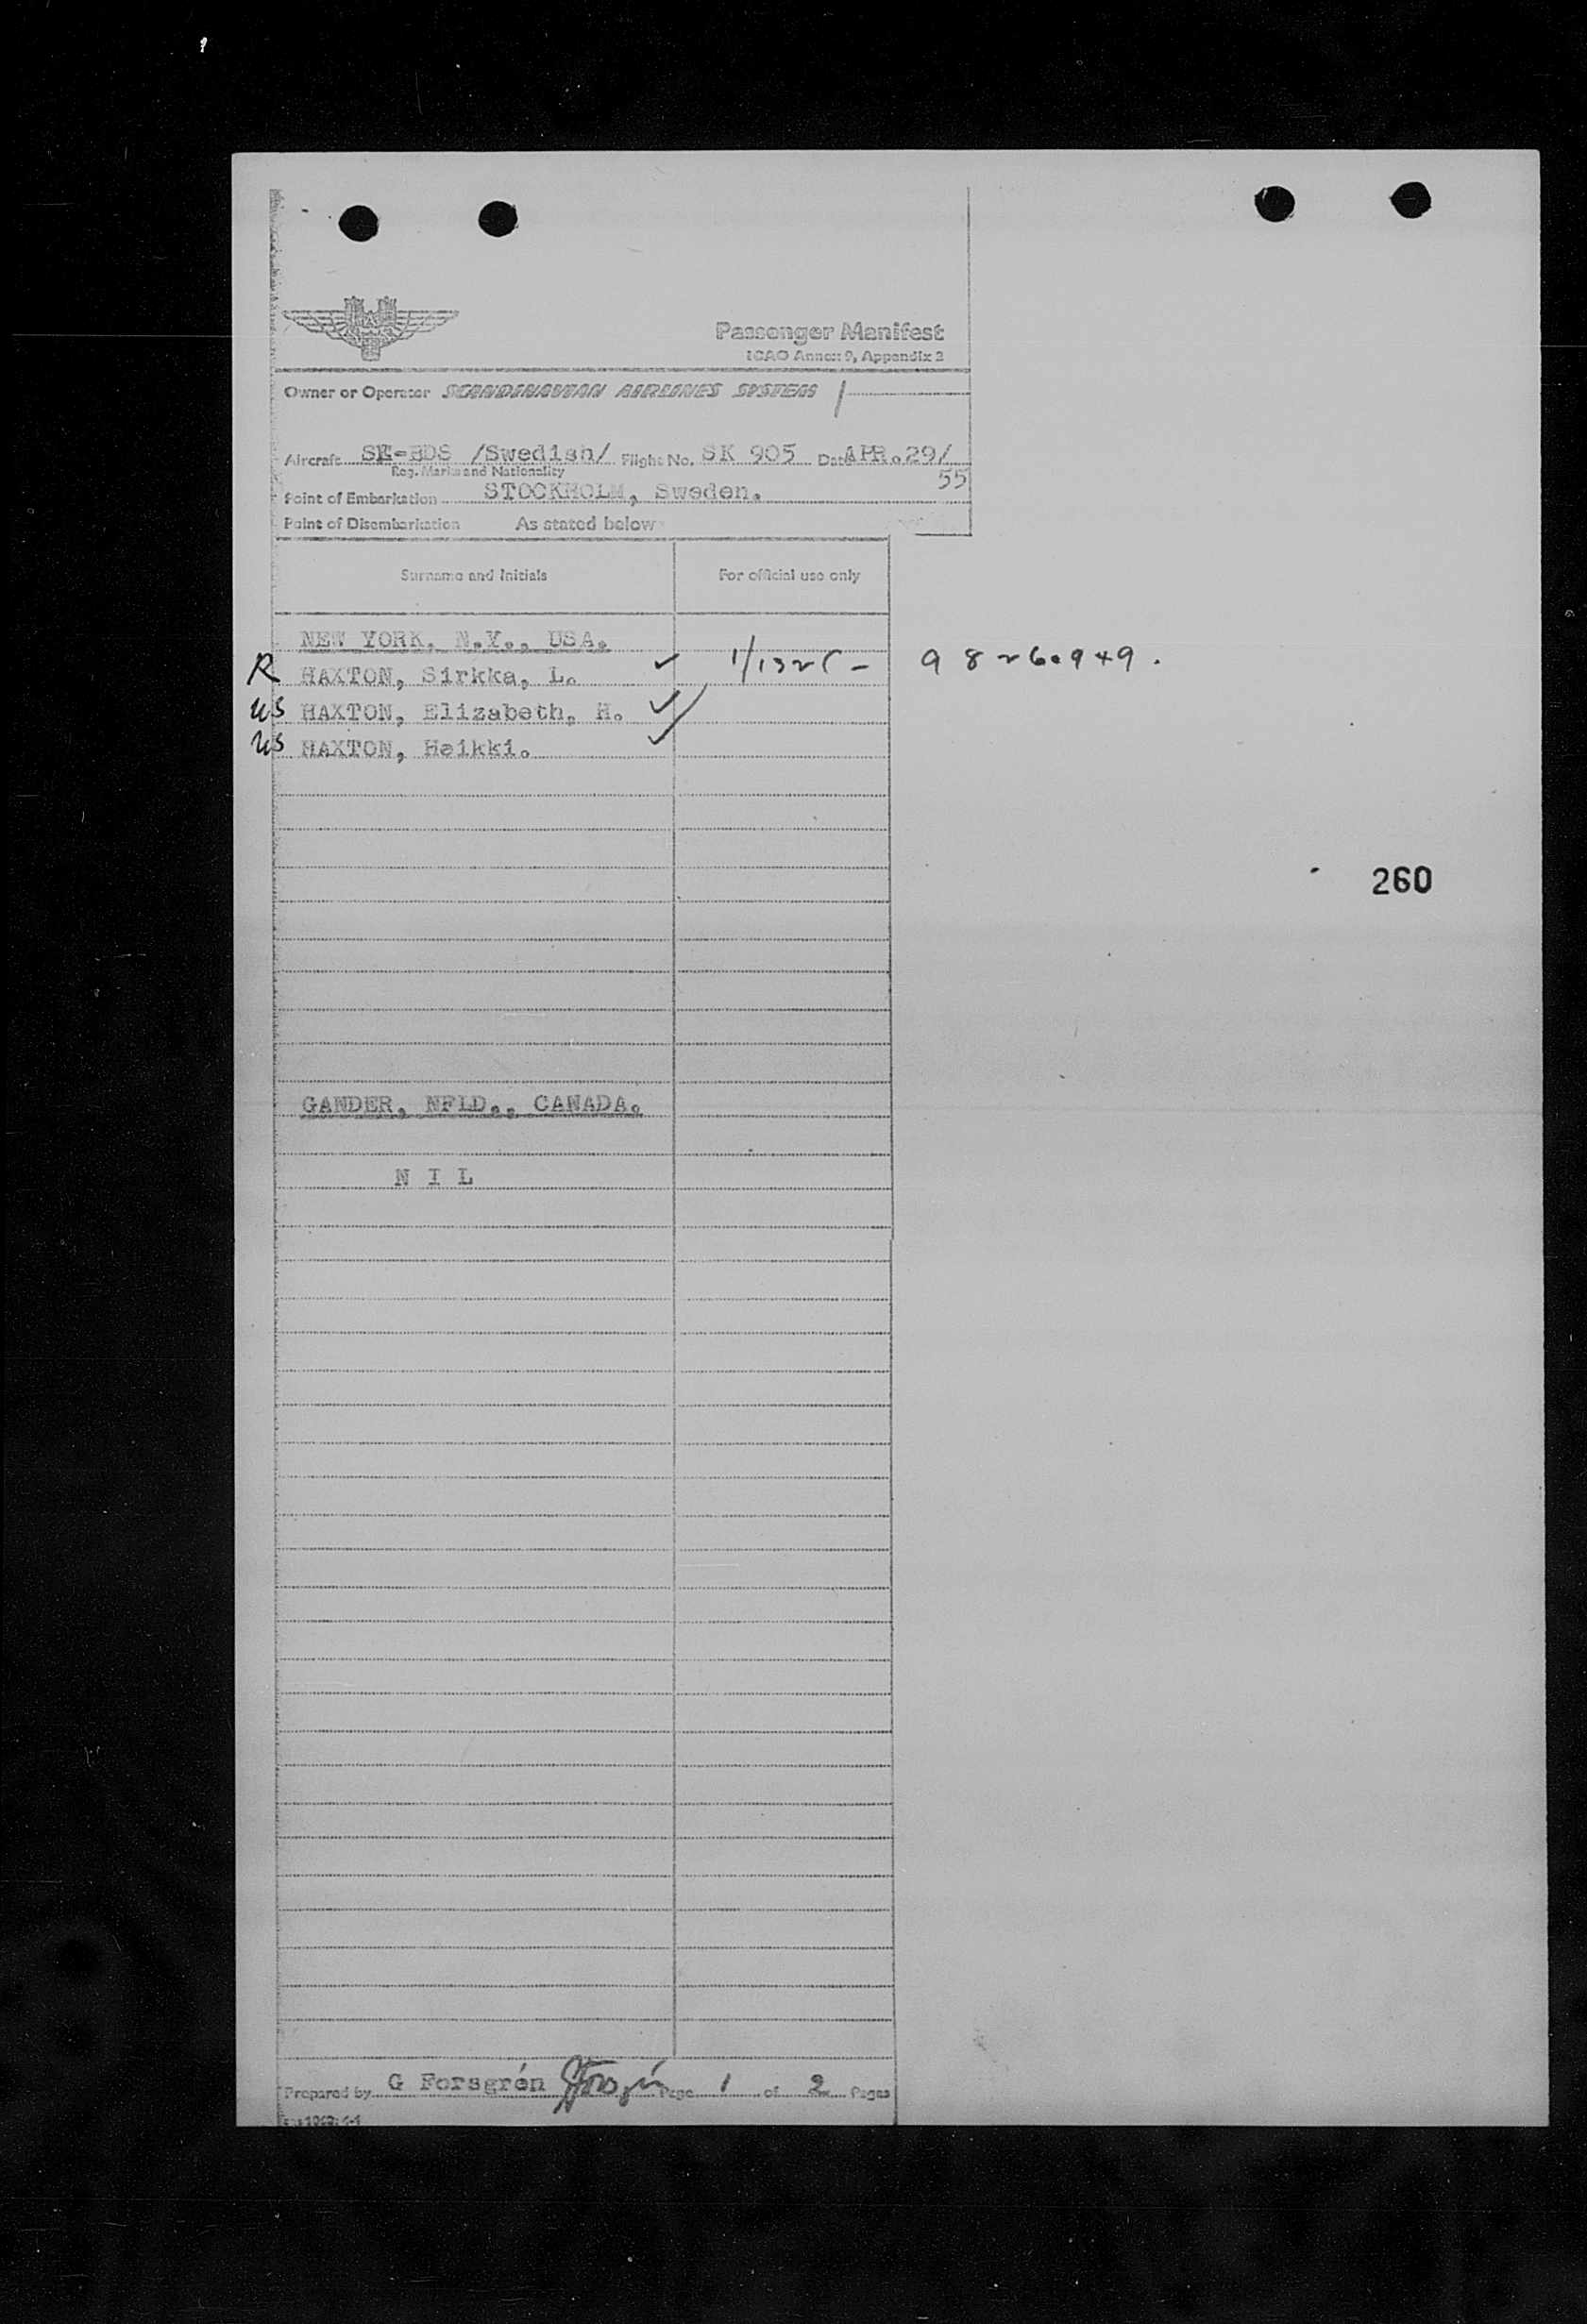 Passenger Manifest
ICAO Annex 9, Appendix 2
Owner or Operator SCANDINAVIAN AIRLINES SYSTEM
Aircraft SE-BDS /Swedish/ Flight No. SK 905 Date APR.29/
Reg. Marks and Nationality
55
Point of Embarkation STOCKHOLM, Sweden.
Point of Disembarkation As stated below
Surname and Initials For official use only
NEW YORK, N.Y., USA.
R HAXTON, Sirkka, L.
US HAXTON, Elizabeth, H.
US HAXTON, Heikki.
260
GANDER, NFLD., CANADA.
N I L
Prepared by G Forsgrén Page 1 of 2 Pages